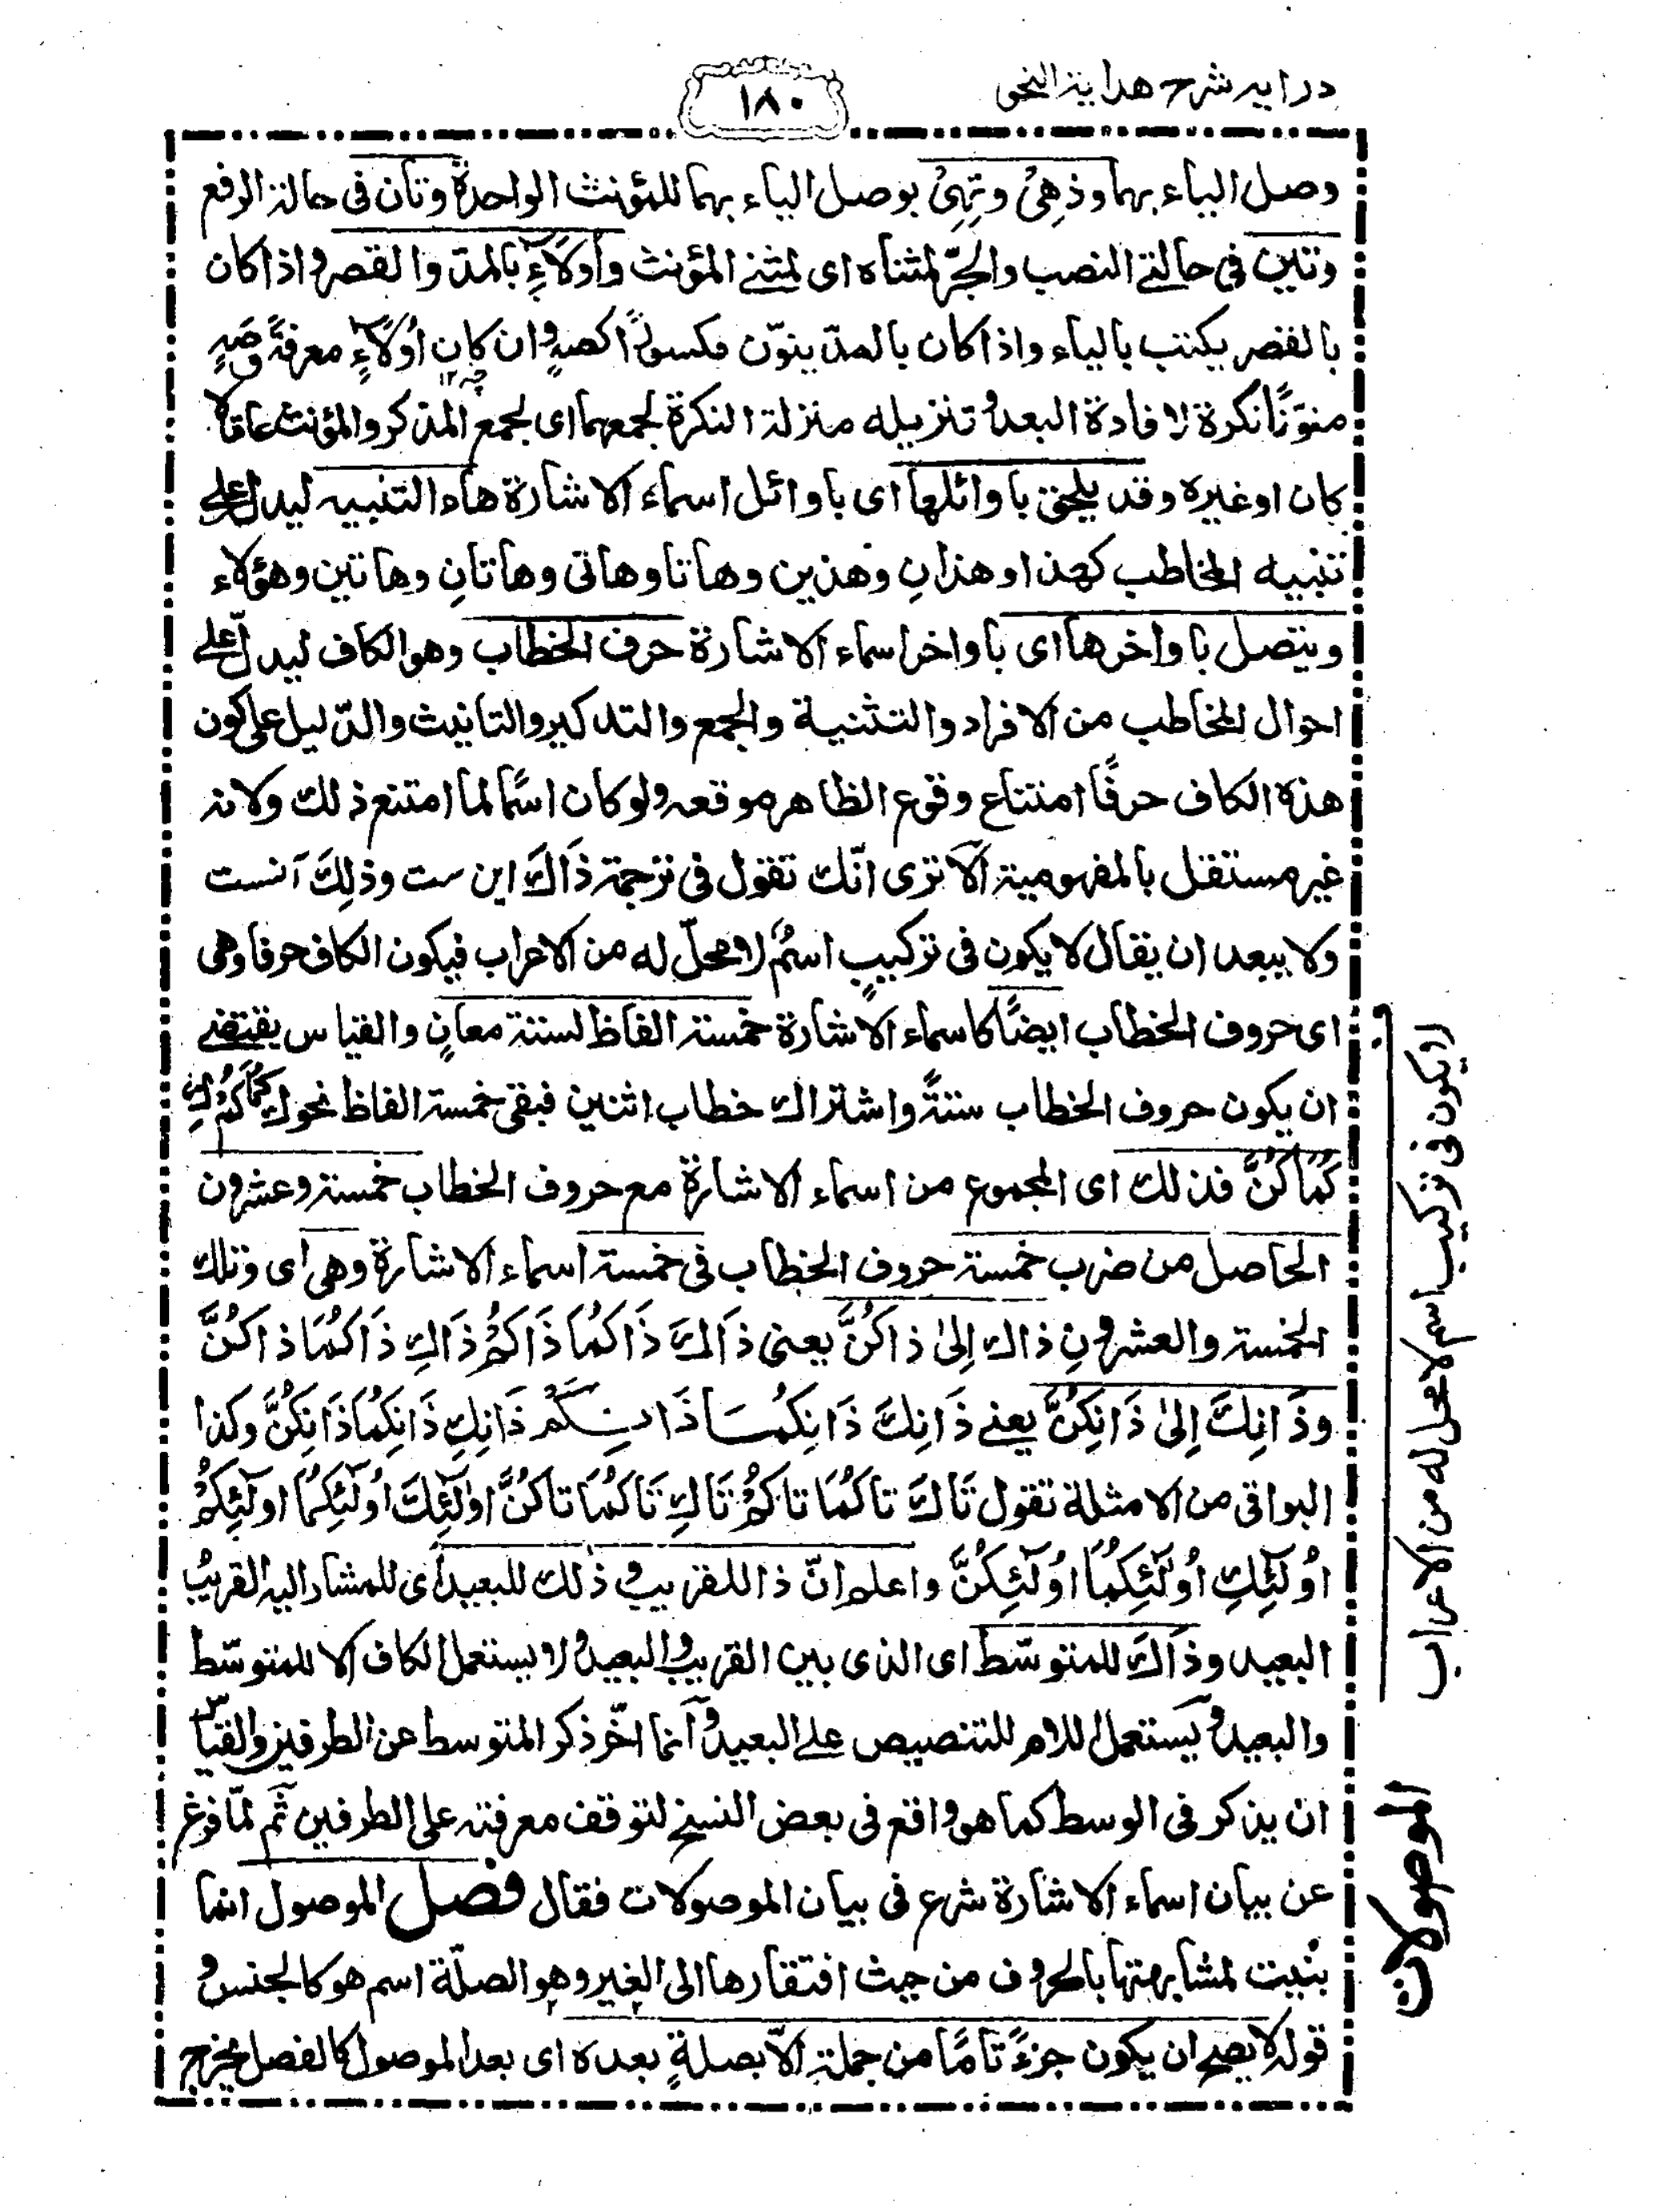 درايه شرح هداية النحو
١٨٠
وصل الياء بهما وذهي وتهي بوصل الياء بهما للمؤنث الواحدة وتان في حالة الرفع
وتين في حالتي النصب والجرّ لمثناه اى لمثنى المؤنث وأولاءِ بالمدّ والقصر واذا كان
بالقصر يكتب بالياء واذا كان بالمدّ ينوّن مكسورًا كصهٍ وان كان اولاءٍ معرفةً وصهٍ
منوّنًا نكرة لافادة البعد وتنزيله منزلة النكرة لجمعهما اى لجمع المذكر والمؤنث عاقلا
كان او غيره وقد يلحق باوائلها اى باوائل اسماء الاشارة هاء التنبيه ليدل على
تنبيه المخاطب كهذا وهذانِ وهذين وهاتا وهاتى وهاتانِ وهاتين وهؤلاء
ويتصل باواخرها اى باواخر اسماء الاشارة حرف الخطاب وهو الكاف ليدلّ على
احوال المخاطب من الافراد والتثنية والجمع والتذكير والتانيث والدّليل على كون
هذه الكاف حرفًا امتناع وقوع الظاهر موقعه ولو كان اسمًا لما امتنع ذلك ولانه
غير مستقل بالمفهومية ألا ترى انّك تقول في ترجمة ذَاكَ اين ست وذلِكَ آنست
ولا يبعد ان يقال لا يكون في تركيبٍ اسمٌ لا محلّ له من الاعراب فيكون الكاف حرفا وهى
اى حروف الخطاب ايضًا كاسماء الاشارة خمسة الفاظ لستة معانٍ والقياس يقتضى
ان يكون حروف الخطاب ستةً واشتراك خطاب اثنين فبقى خمسة الفاظ نحو كَ كُمَا كُمْ كِ
كُمَا كُنَّ فذلك اى المجموع من اسماء الاشارة مع حروف الخطاب خمسة وعشرون
الحاصل من ضرب خمسة حروف الخطاب في خمسة اسماء الاشارة وهى اى وتلك
الخمسة والعشرون ذاك إلىٰ ذاكُنَّ يعنى ذَاكَ ذَاكُمَا ذَاكُمْ ذَاكِ ذَاكُمَا ذاكُنَّ
وذَانِكَ إِلىٰ ذَانِكُنَّ يعنى ذَانِكَ ذَانِكُمَا ذَانِكُمْ ذَانِكِ ذَانِكُمَا ذَانِكُنَّ وكذا
البواقى من الامثلة تقول تَاكَ تاكُمَا تاكُمْ تَاكِ تَاكُمَا تاكُنَّ اولٰئِكَ اُولٰئِكُمَا اولٰئِكُمْ
اُولٰئِكِ اُولٰئِكُمَا اُولٰئِكُنَّ واعلم انّ ذا للقريب وذٰلك للبعيد اى للمشار اليه القريب و
البعيد وذَاكَ للمتوسّط اى الذى بين القريب والبعيد ولا يستعمل الكاف الا للمتوسّط
والبعيد ويستعمل اللام للتنصيص على البعيد وانما اخّر ذكر المتوسط عن الطرفين والقياس
ان يذكر في الوسط كما هو واقع في بعض النسخ لتوقف معرفته على الطرفين ثم لمّا فرغ
عن بيان اسماء الاشارة شرع في بيان الموصولات فقال فصل الموصول انما
بُنيت لمشابهتها بالحروف من حيث افتقارها الى الغير وهو الصلّة اسم هو كالجنس و
قوله لا يصح ان يكون جزءً تامًّا من جملة الّا بصلةٍ بعده اى بعد الموصول كالفصل يخرج
لا يكون في تركيب اسم لا محل له من الاعراب
الموصولات